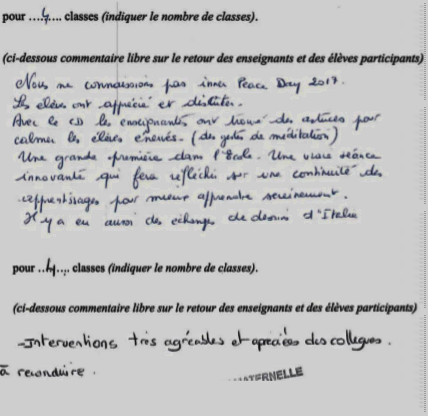 pour ....4.... classes (indiquer le nombre de classes).
(ci-dessous commentaire libre sur le retour des enseignants et des élèves participants)
Nous ne connaissions pas inner Peace Day 2017.
Les élèves ont apprécié et
Avec le CD les enseignants ont trouvé des astuces pour
calmer les élèves énervés. (des gestes de méditation)
Une grande première dans l'École. Une vraie séance
innovante qui fera réfléchir sur une continuité des
apprentissages pour mieux apprendre sereinement.
Il y a eu aussi des échanges de dessins d'Italie
pour ..4.... classes (indiquer le nombre de classes).
(ci-dessous commentaire libre sur le retour des enseignants et des élèves participants)
-Interventions très agréables et appréciées des collègues.
à reconduire.
MATERNELLE